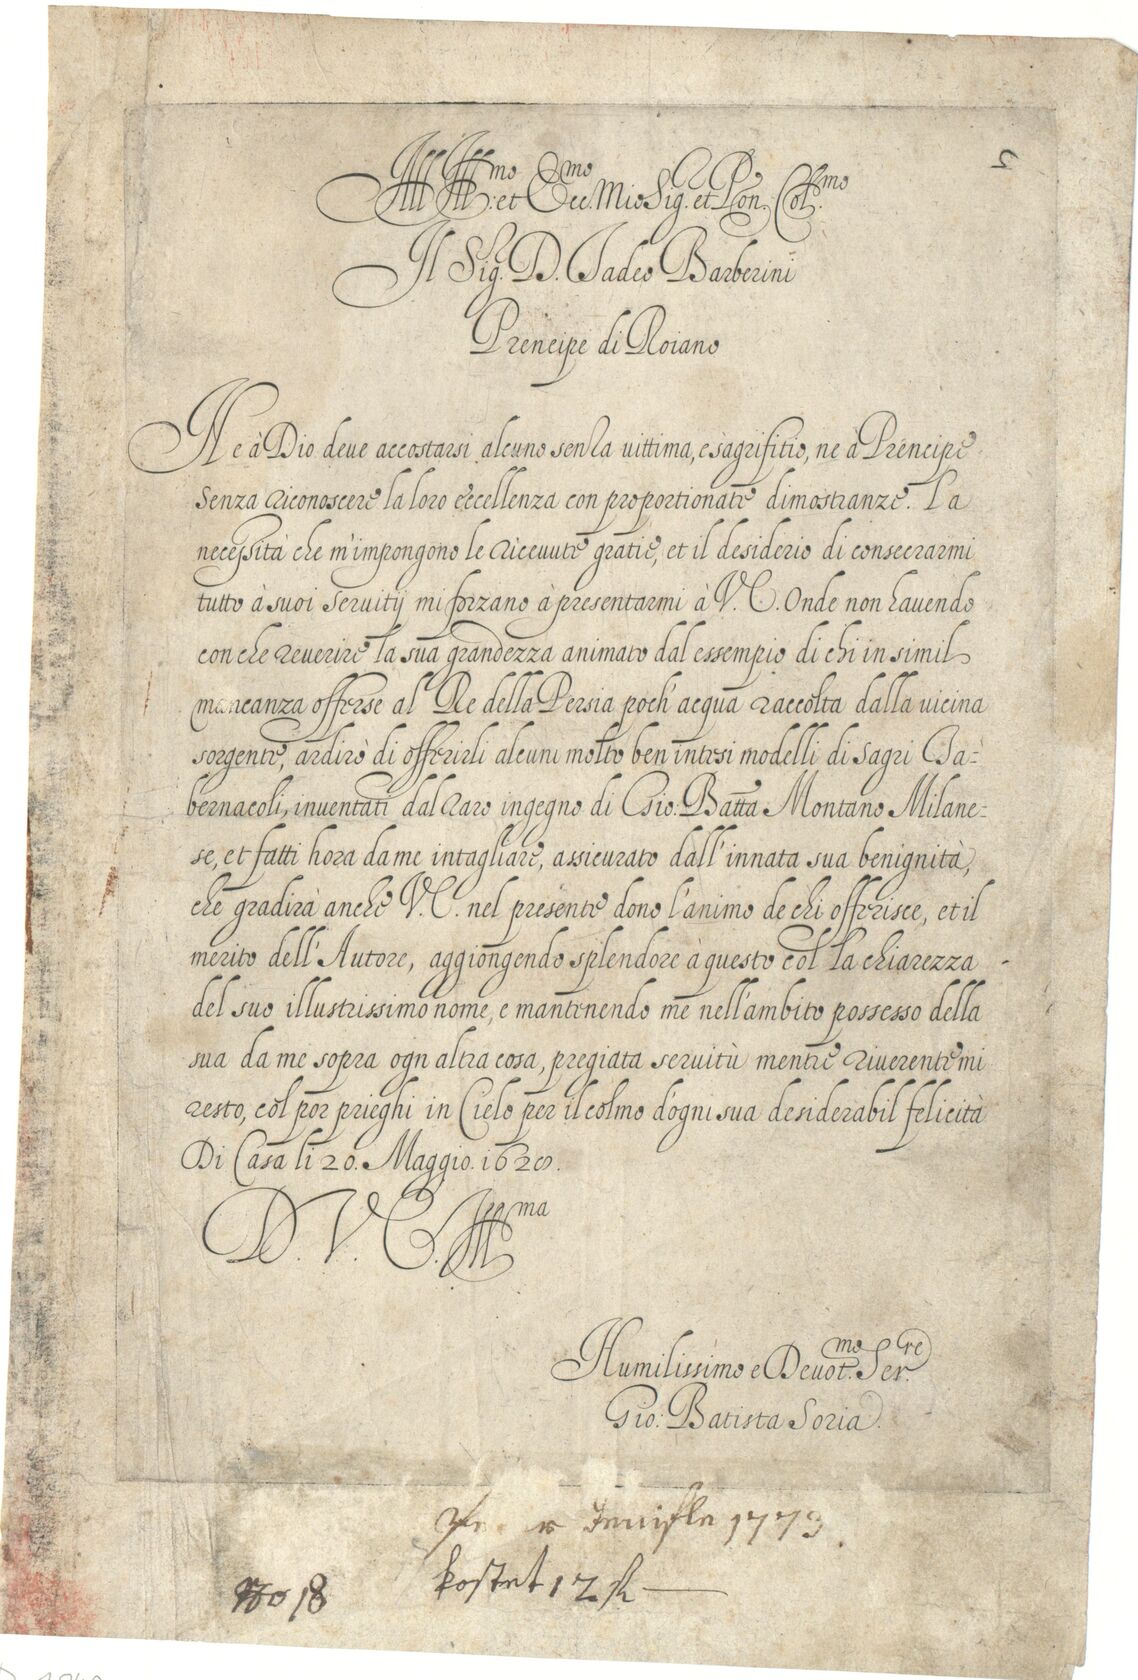 2
All Ill.mo et Ecc.mo Mio Sig. et Pon. Col.mo
Il Sig. D. Tadeo Barberini
Prencipe di Roiano
Ne à Dio deue accostarsi alcuno senza uittima, e sagrifitio, ne à Prencipe
senza riconoscere la loro eccellenza con proportionate dimostranze. La
necessità che m'impongono le riceuute gratie, et il desiderio di consecrarmi
tutto à suoi seruitij mi forzano à presentarmi à V. E. Onde non hauendo
con che reuerire la sua grandezza animato dal essempio di chi in simil
mancanza offerse al Re della Persia poch' acqua raccolta dalla uicina
sorgente, ardirò di offerirli alcuni molto ben intesi modelli di sagri Ta=
bernacoli, inuentati dal raro ingegno di Gio: Batta Montano Milane=
se, et fatti hora da me intagliare, assicurato dall'innata sua benignità,
che gradirà anche V. E. nel presente dono l'animo de chi offerisce, et il
merito dell'Autore, aggiongendo splendore à questo col la chiarezza
del suo illustrissimo nome, e mantenendo me nell'ambito possesso della
sua da me sopra ogn altra cosa, pregiata seruitù mentre riuerente mi
resto, col por prieghi in Cielo per il colmo d'ogni sua desiderabil felicità
Di Casa li 20. Maggio. 1628.
D. V. E. Ill.ma
Humilissimo e Deuot.mo Ser.re
Gio: Batista Soria.
1773
kostet 12
No 18